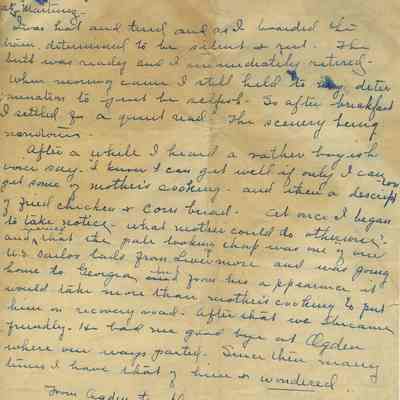 at Martinez.
I was hot and tired and as I boarded the
train determined to be silent & rest. The
birth was ready and I immediately retired.
When morning came I still held to my deter
mination to just be selfish. So after breakfast
I settled for a quiet read. The scenery being
After a while I heard a rather boyish
voice say. I know I can get well if only I can
get some of mother's cooking. and then a descript
of fried chicken & corn bread. At once I began
to take notice. what mother could do otherwise.
and that the pale looking chap was one of our
U.S. sailor lads from Livermore and was going
home to Georgia, and from his appearance it
would take more than mother's cooking to put
him on recovery road. After that we became
friendly. He bade me good bye at Ogden
where our ways parted. Since then many
times I have thot of him & wondered.
From Ogden to